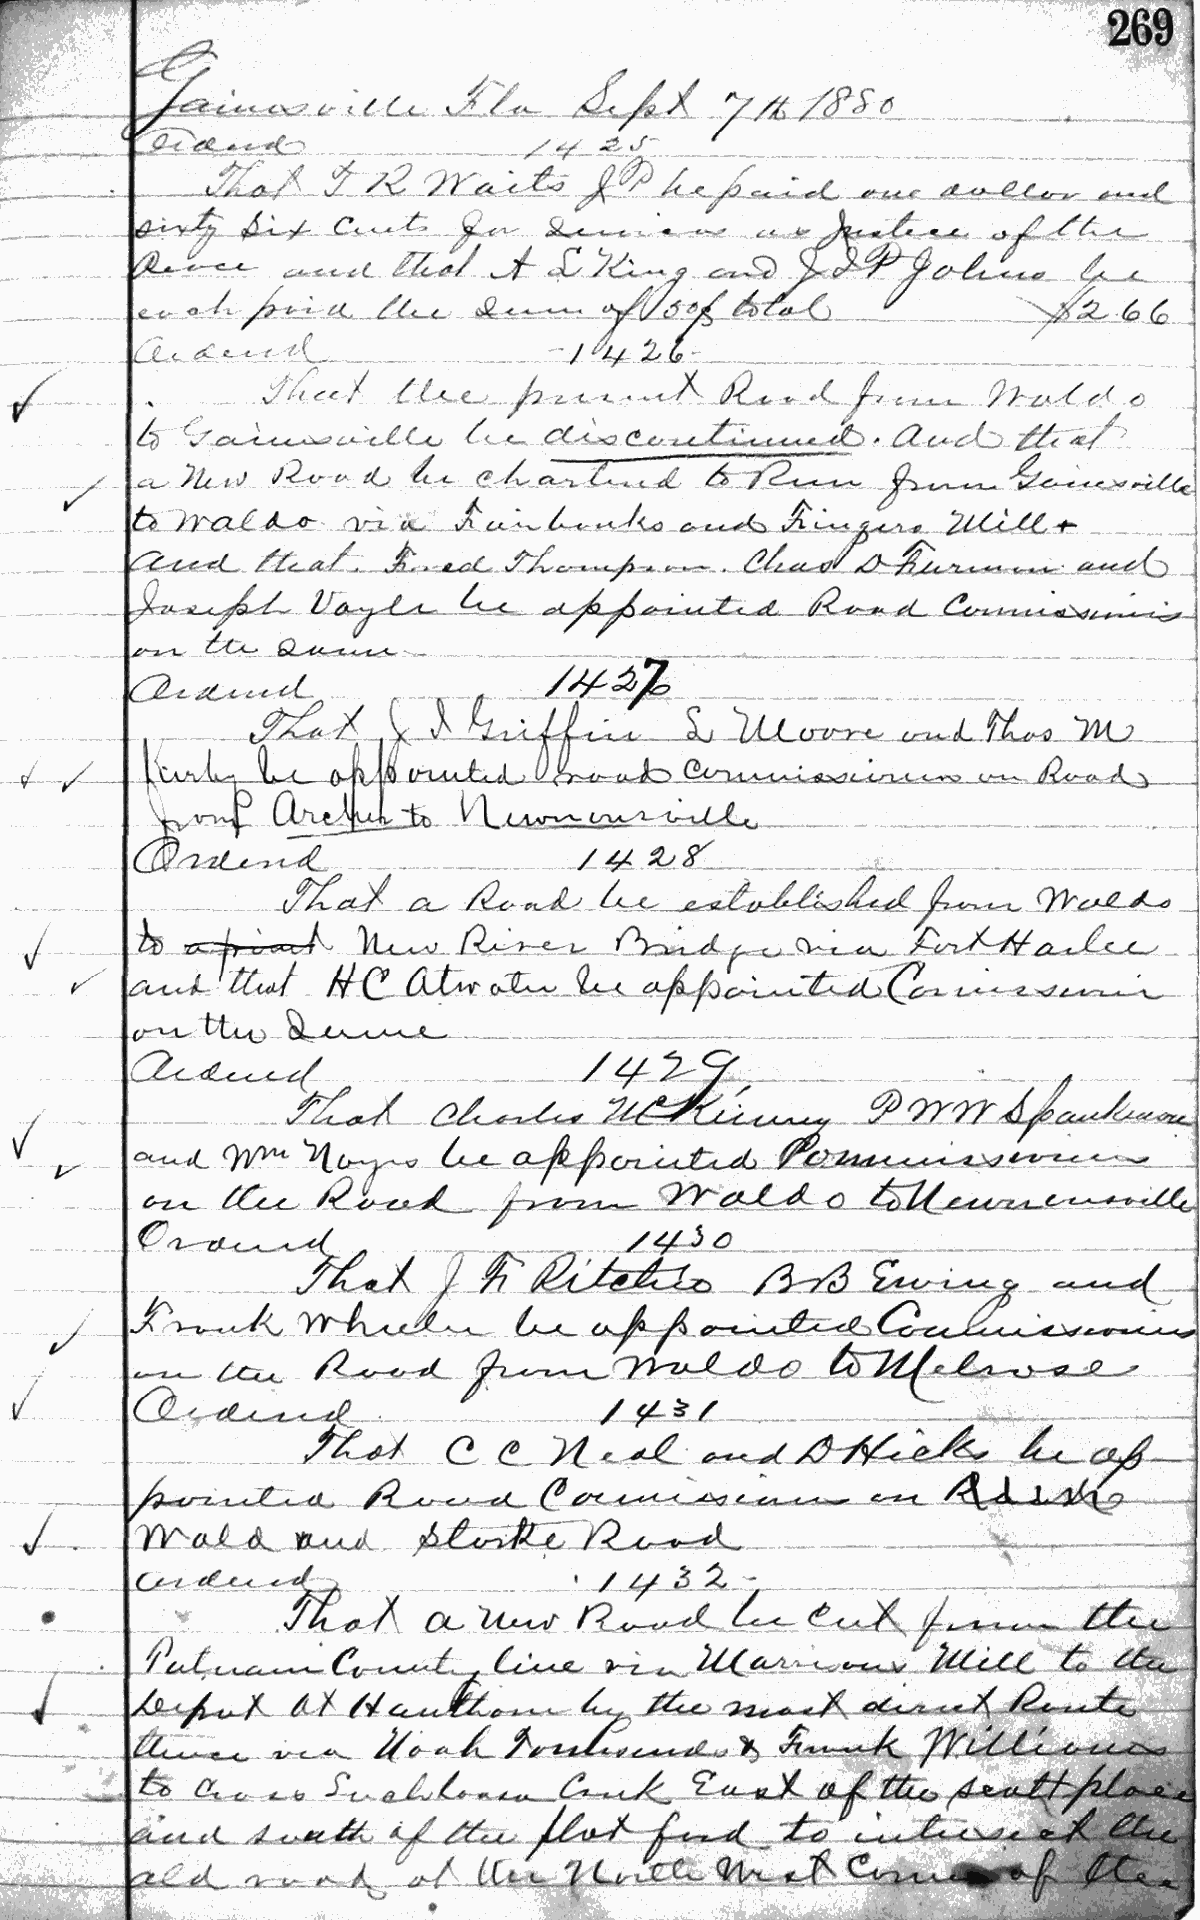 269
Gainesville Fla Sept 7th 1880
Ordered 1425
That T R Waits J P be paid one dollar and
sixty six cents for services as Justice of the
Peace and that A L King and J I P Johns be
each paid the sum of 50¢ total $2.66
Ordered -1426-
That the present Road from Waldo
to Gainesville be discontinued. And that
a New Road be chartered to Run from Gainesville
to Waldo via Fairbanks and Fingers Mill +
And that Fred Thompson. Chas D Furman and
Joseph Vogle be appointed Road Commissioners
on the same
Ordered 1427
That J I Griffin L Moore and Thos M
Kirby be appointed road commissioners on Road
from Archer to Newnansville
Ordered 1428
That a Road be established from Waldo
to a point New River Bridge via Fort Harlee
and that H C Atwater be appointed Commissioner
on the Same
Ordered 1429
That Charles McKinney P W W Spankman
and Wm Noyes be appointed Commissioners
on the Road from Waldo to Newnansville
Ordered 1430
That J F Ritchie B B Ewing and
Frank Wheeler be appointed Commissioners
on the Road from Waldo to Melrose
Ordered 1431
That C C Neal and D Hicks be ap-
pointed Road Commissioners on
Waldo and Starke Road
Ordered 1432-
That a New Road be cut from the
Putnam County line via Marrions Mill to the
Depot at Hawthorn by the most direct Route
thence via Noah Townsends & Frank Williams
to cross Creek East of the Scott place
and south of the flat ford to intersect the
old road at the North West Corner of the